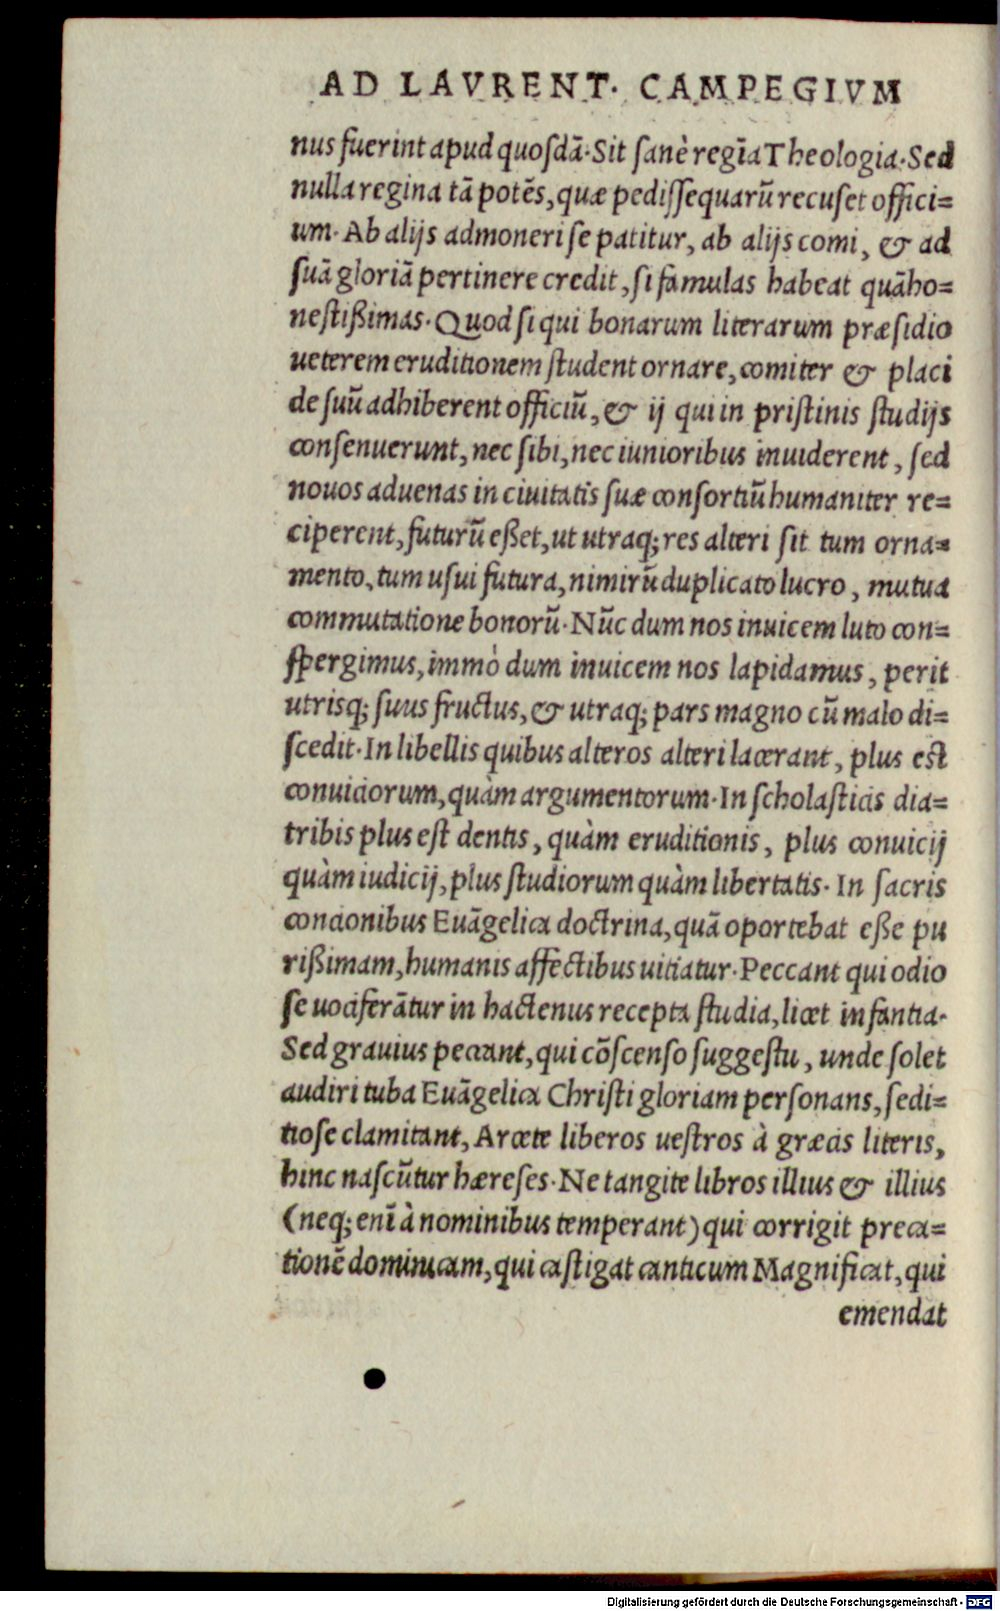 AD LAVRENT. CAMPEGIVM
nus fuerint apud quosdā. Sit sanè regīa Theologia. Sed
nulla regina tā potēs, quæ pedissequarū recuset offici=
um. Ab alijs admoneri se patitur, ab alijs comi, & ad
suā gloriā pertinere credit, si famulas habeat quāho=
nestißimas. Quod si qui bonarum literarum præsidio
ueterem eruditionem student ornare, comiter & placi
de suū adhiberent officiū, & ij qui in pristinis studijs
consenuerunt, nec sibi, nec iunioribus inuiderent, sed
nouos aduenas in ciuitatis suæ consortiū humaniter re=
ciperent, futurū eßet, ut utraq; res alteri sit tum orna=
mento, tum usui futura, nimirū duplicato lucro, mutua
commutatione bonorū. Nūc dum nos inuicem luto con=
spergimus, immò dum inuicem nos lapidamus, perit
utrisq; suus fructus, & utraq; pars magno cū malo di=
scedit. In libellis quibus alteros alteri lacerant, plus est
conuiciorum, quàm argumentorum. In scholasticis dia=
tribis plus est dentis, quàm eruditionis, plus conuicij
quàm iudicij, plus studiorum quàm libertatis. In sacris
concionibus Euāgelica doctrina, quā oportebat eße pu
rißimam, humanis affectibus uitiatur. Peccant qui odio
se uociferātur in hactenus recepta studia, licet infantia.
Sed grauius peccant, qui cōscenso suggestu, unde solet
audiri tuba Euāgelica Christi gloriam personans, sedi=
tiose clamitant, Arcete liberos uestros à græcis literis,
hinc nascūtur hæreses. Ne tangite libros illius & illius
(neq; enī à nominibus temperant) qui corrigit preca=
tionē dominicam, qui castigat canticum Magnificat, qui
emendat
Digitalisierung gefördert durch die Deutsche Forschungsgemeinschaft - DFG